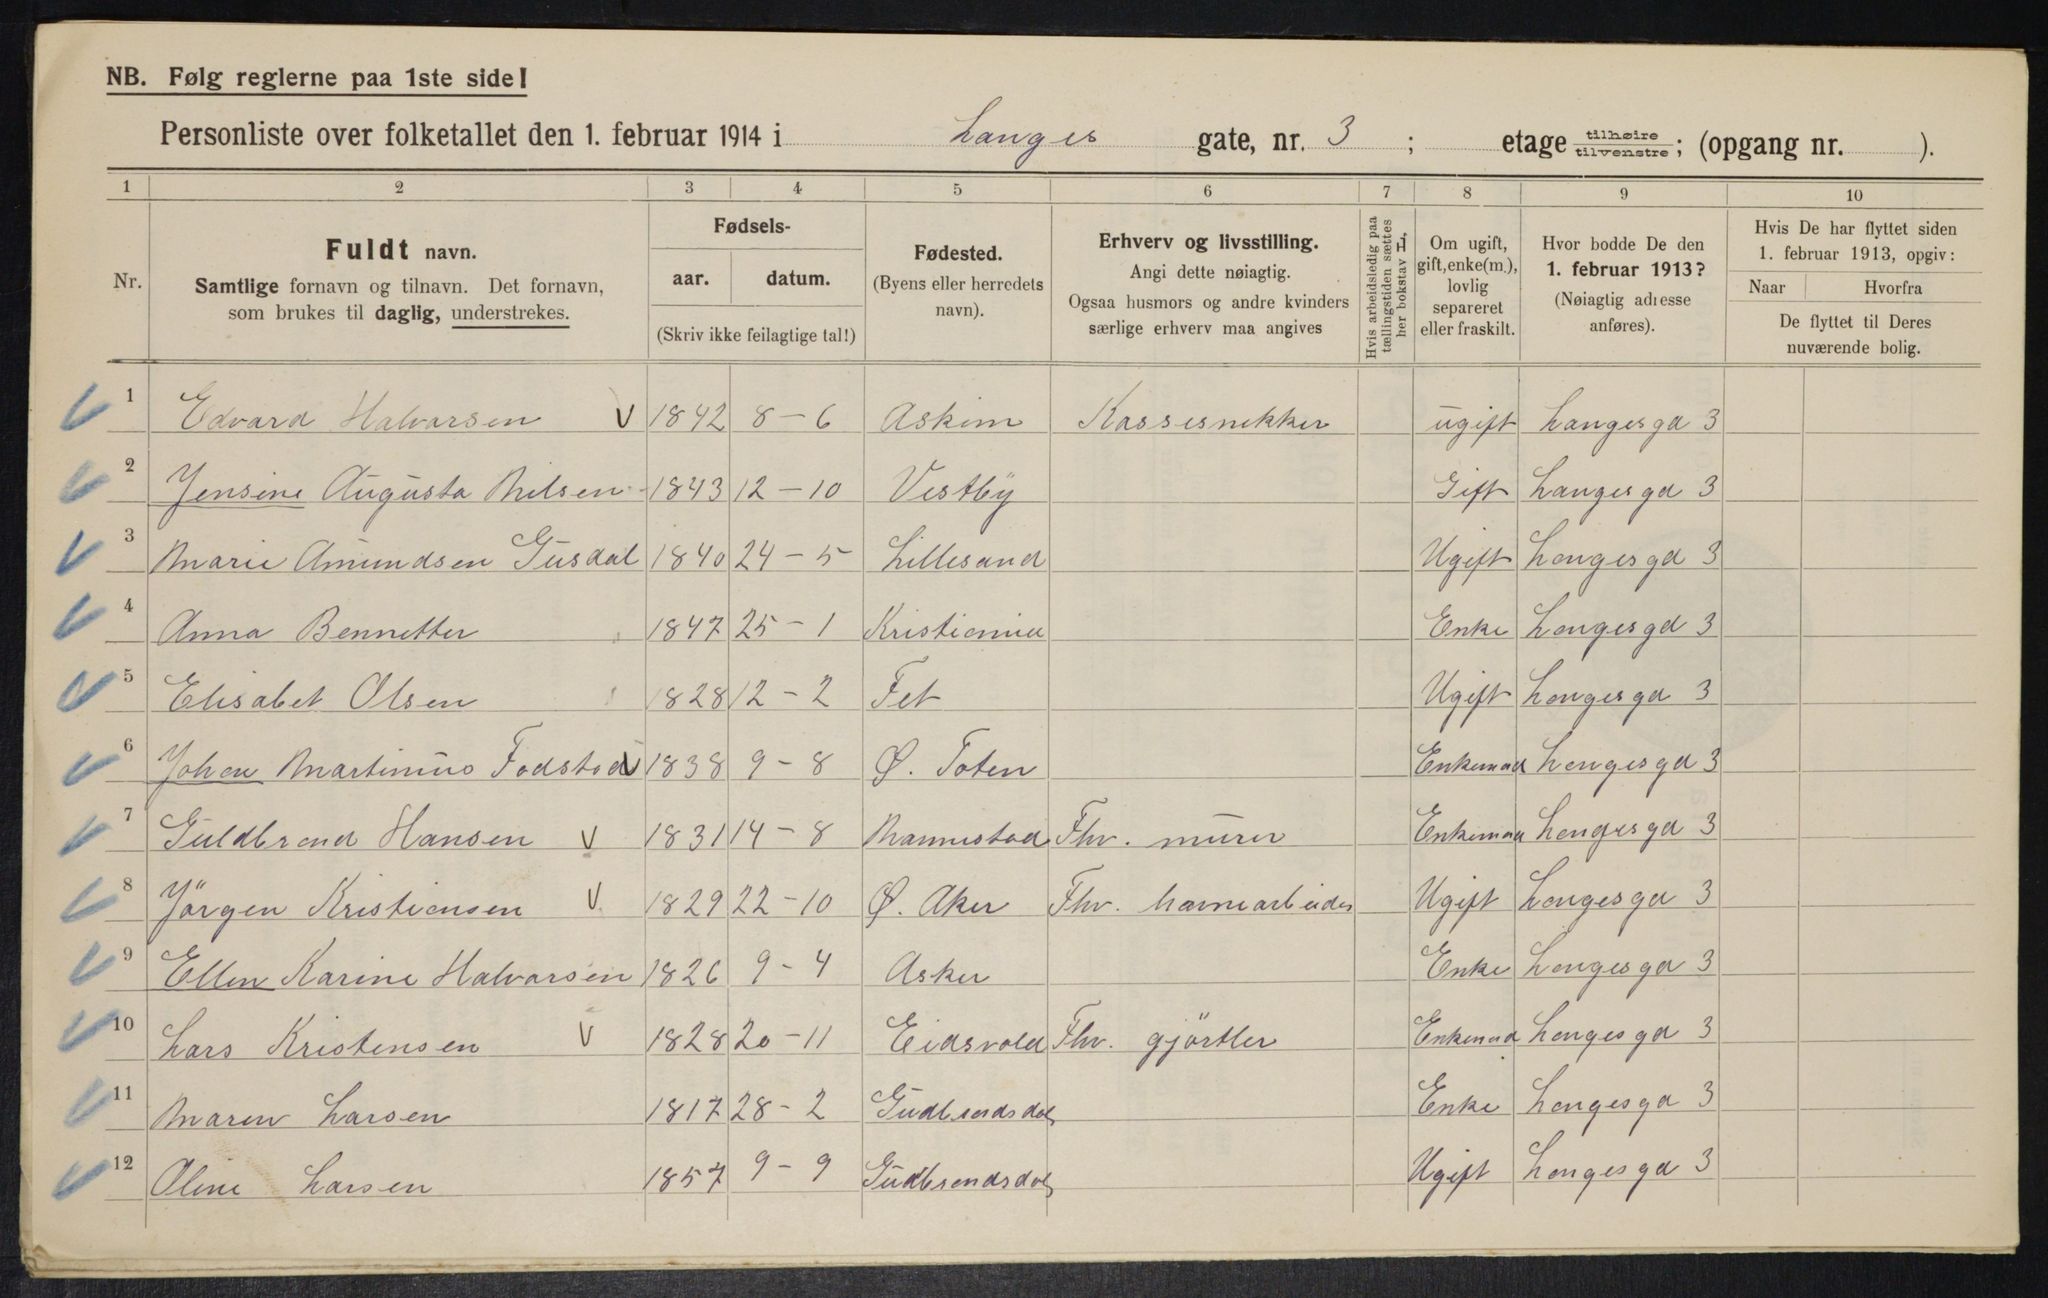 NB. Følg reglerne paa 1ste side!
Personliste over folketallet den 1. februar 1914 i Langes gate, nr. 3 ; etage tilhøire / tilvenstre ; (opgang nr. ).
1 2 3 4 5 6 7 8 9 10
Nr.
Fuldt navn.
Samtlige fornavn og tilnavn. Det fornavn,
som brukes til daglig, understrekes.
Fødsels-
aar. datum.
(Skriv ikke feilagtige tal!)
Fødested.
(Byens eller herredets
navn).
Erhverv og livsstilling.
Angi dette nøiagtig.
Ogsaa husmors og andre kvinders
særlige erhverv maa angives
Hvis arbeidsledig paa
tællingstiden sættes
her bokstav L,
Om ugift,
gift, enke(m.),
lovlig
separeret
eller fraskilt.
Hvor bodde De den
1. februar 1913?
(Nøiagtig adresse
anføres).
Hvis De har flyttet siden
1. februar 1913, opgiv:
Naar Hvorfra
De flyttet til Deres
nuværende bolig.
1 Edvard Halvorsen 1842 8-6 Askim Kassesnekker ugift Langesgd 3
2 Jensine Augusta Nilsen 1843 12-10 Vestby Gift Langesgd 3
3 Marie Amundsen Gusdal 1840 24-5 Lillesand Ugift Langesgd 3
4 Anna Bennetter 1847 25-1 Kristiania Enke Langesgd 3
5 Elisabet Olsen 1828 12-2 Fet Ugift Langesgd 3
6 Johan Martinius Fodstad 1838 9-8 Ø. Toten Enkemad Langesgd 3
7 Guldbrand Hansen 1831 14-8 Nannestad Fhv. murer Enkemad Langesgd 3
8 Jörgen Kristiansen 1829 22-10 Ø. Aker Fhv. havnearbeider Ugift Langesgd 3
9 Ellen Karine Halvorsen 1826 9-4 Asker Enke Langesgd 3
10 Lars Kristensen 1828 20-11 Eidsvold Fhv. gjörtler Enkemad Langesgd 3
11 Maren Larsen 1817 28-2 Gudbrandsdal Enke Langesgd 3
12 Oline Larsen 1857 9-9 Gudbrandsdal Ugift Langesgd 3